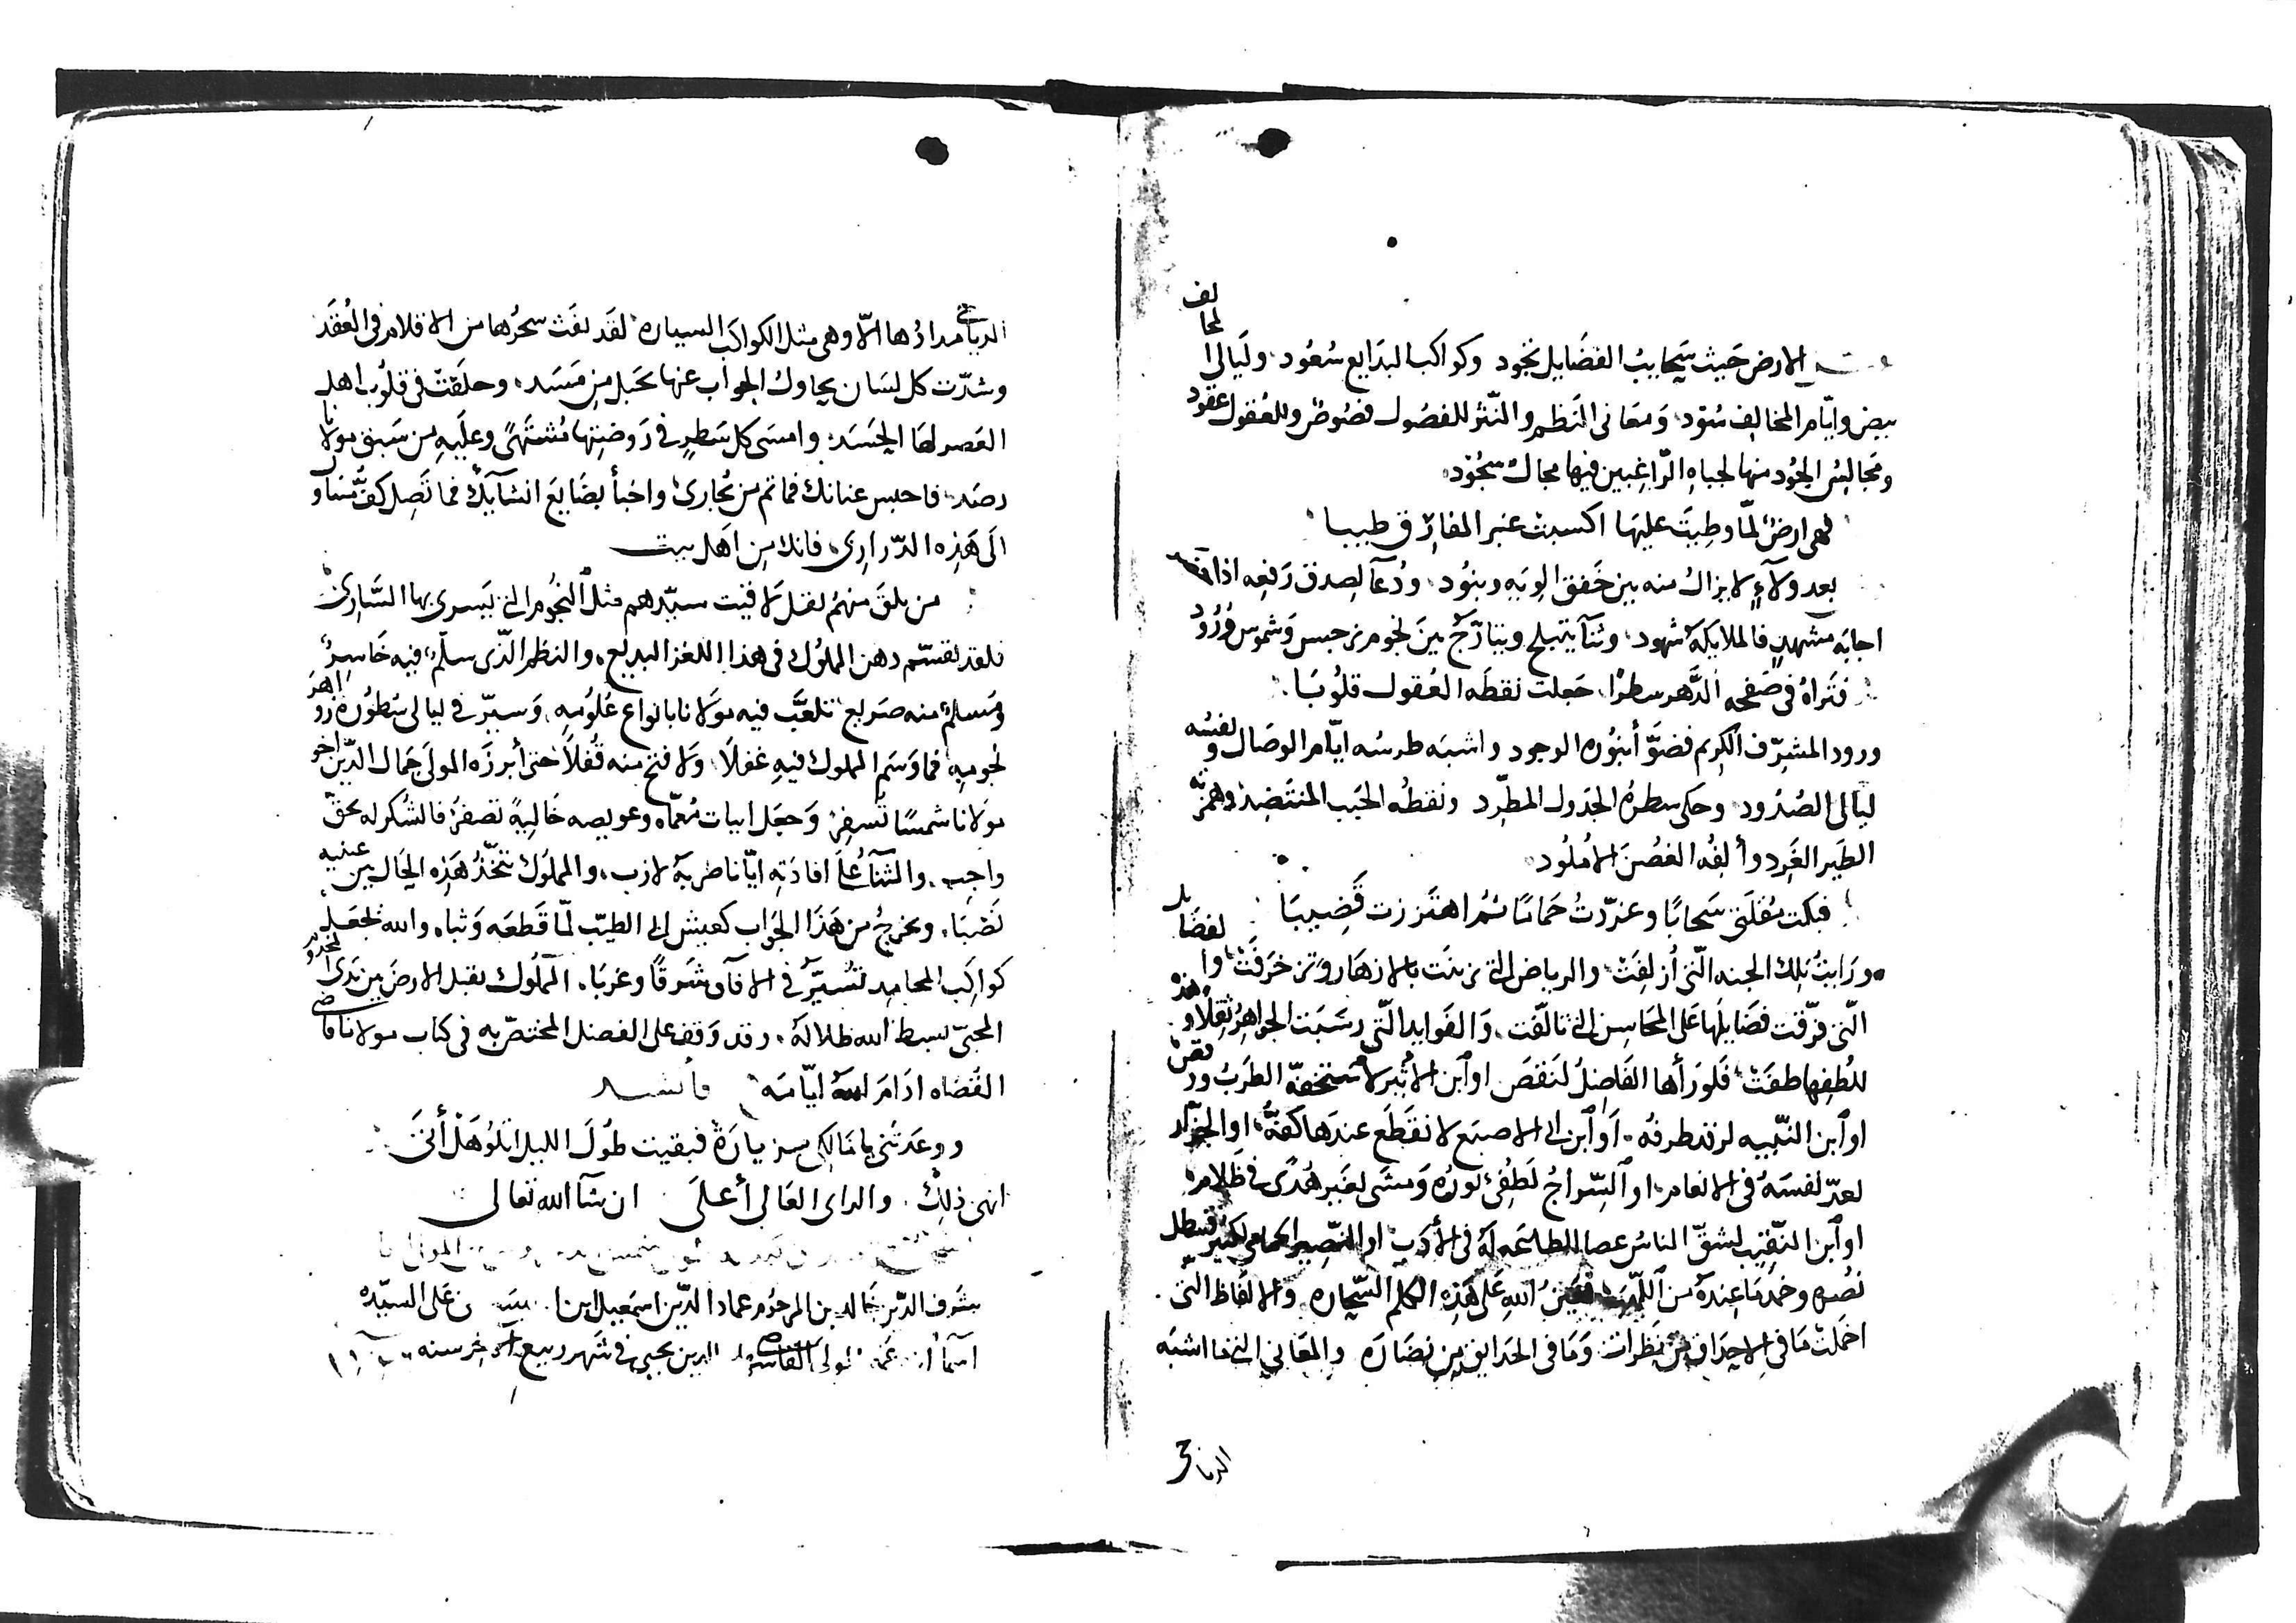 الارض حَيث سَحايبُ الفضَايل تجود وكواكب البدَايع سُعُود وليَالى المحالف
بيض وايّام المخالِف سُوّد وَمعَانى النظم والنّثر للفصُول فصُوصٌ وللعُقول عقود
ومجَالسُ الجُود منها لجباهِ الرّاغبين فيها مجال سجُود
فهى ارضٌ لمّا وطِيتَ عليهَا اكسبت عنبر المفارق طيبا
بعد ولآءٍ لا يزالُ منه بين خَفق الويه وبنُود ودُعآ لصدق رَفعِه اذا
اجابَه مشهدٍ فالملايكة شهود وثنآ يتبلج ويتأرّج بينَ نجوم نرجس وَشموس وُرُود
فتَراهُ فى صَفحه الدَّهر سطرًا جَعلت نقطَه العُقول قلُوبَا
ورود المشرّف الكريم فضوَّأ بنُوره الوجود واشبَه طرسُه ايّام الوصَال ونفسُه
ليالى الصُدُود وحكى سطرُه الجَدول المطّرد ونقطُه الحَبب المنتَضِد وهمزتُه
الطَير الغَرِد وألفُه الغصُنَ الاُملُود
فبكت مُقلَتى سَحابًا وغرّدتُ حَمامًا ثم اهتَززت قَضِيبَا
ورَايتُ تلك الجنه الّتى أُزلفَتْ والرياض التى زينَت بالازهَار وَتزخرَفَتْ والفضَايل
الّتى فرّقت فضَايلهَا عَلى المحَاسِن التى تالّفت وَالفوايد الّتى رسَبَت الجواهِرُ ثِقَلًا وهذه
للُطفِها طفَتْ فلورَأها الفَاضِلُ لَنقصَ او آبن الاثير لاَستخفّه الطرَبُ ورَقصَ
او آبن النَّبيه لرَقد طرفُه اَو آبن ابى الاصبَع لانقَطَع عندهَا كفّهُ او الجزّار
لعدّ نفسَهُ فى الانعام او السّراجُ لَطُفِئَ نورُه وَمشَى بغَير هُدًى فى ظَلامه
او آبن النّقيب لشقّ الناسُ عصَا للطاعَه لهُ فى الأدَب او النّصِير الحمامى لكثر قسطل
نصُره وخمدَ مَا عِندهُ من اللّهب فعَينُ اللهِ على هَذِه الكلم السّحاره والالفَاظ التى
اخمَلتْ مَا فى الاحدَاق مِن نَظرات وَمَا فى الحدَايق مِن نضَارَه والمعَانى التى ما اشبَه
الدياجى
الدياجى مدادُها الّا وهى مثل الكواكَب السياره لقَد نفَث سحرُها من الاقلام فى العُقَد
وشدّت كل لسَان يحاول الجواب عنها بحَبل مِن مَسَد وحلّقَتْ فى قلوُب اهل
العَصر لهَا الحسَدَ وامسَى كل سَطرٍ فى رَوضتِها مُشتَهىً وعلَيهِ من سَبق مولانا
رصَد فاحبس عنانك فما ثم من يُجارى واخبأ بضَايعَ انشآيكَ فما تَصِل كفُّ مُتناول
الَى هَذِه الدّرارِى فانكَ مِن اَهل بيت
من تلقَ منهُم تقل لاقيت سيّدهم مثل النجُوم التى يَسرى بها السَّارى
فلقد تقسّم ذهن المملوُك فى هذا اللغز البديع والنظم الذّى سلّم فيه خَاسِرٌ
ومُسلمٌ منه صريع تلعَّب فيه مولانا بانواع عُلُومِه وَسيرّ فى ليالى سُطوُره زَواهرَ
نجومِهِ فما وَسَم المملوك فيهِ غفلًا وَلا فتح منه قُفلاً حتى أبرزَه المولَى جَمال الدّين اخو
مولانا شمسًا تُسفِر وَجعَل ابيات مُعمّاه وعويصه خَاليةً تصفرُ فالشُكر له بحَق
واجِب والثنآ عُلَى افادَتِه ايّانا ضربةُ لازب والمملوُك تتّخذُ هَذِه الحَال بَين عينيه
نَصْبَا ويخرجُ من هَذَا الجَواب كعيش ابى الطيّب لمّا قَطعَه وَثبا والله تجعَل
كواكَب المحامِد تُسيّرُ فى الافآق شَرقًا وغربَا المَملُوك يقبل الارضَ بين يَدى المخدُوم
المحبّى بسط الله ظلالهُ وقد وَقف على الفصل المختصّ به فى كتاب مولانا قاضى
القُضاه ادَامَ اللهُ ايّامَه فأنشد
ووعَدتَنى يا مَالكى بزيارَةٍ فبقيت طُولَ الليل اتلوُ هَلْ أتىَ
انهى ذلِكَ والراى العَالى أعلىَ ان شآ الله تعالى
شرف الدّين خَالد بن المرحوُم عماد الدّين اسمعيل ابن على السيّده
اسمآ القاضى الدين يحيى فى شَهر ربيع آخر سنه